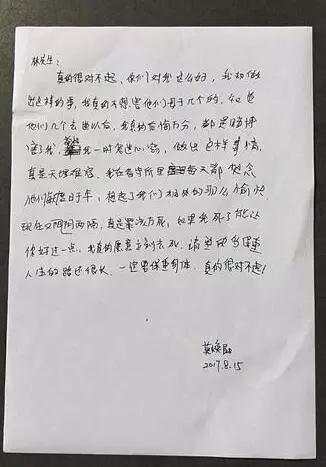 林先生：
真的很对不起，你们对我这么好，我却做
出这样的事，我真的不想害他们母子几个的，知道
他们几个去世以后，我真的后悔万分，都是赌博
害了我，我一时鬼迷心窍，做出这样事情，
真是天理难容，我在看守所里每天都 念
他们 度日子年，想起了我们相处的那么愉快，
现在又阴阳两隔，真是罪该万死，如果我死了能让
你好过一点，我真的愿意立刻去死，请 保重，
人生的路还很长，一定要保重身体，真的很对不起！
莫焕晶
2017.8.15